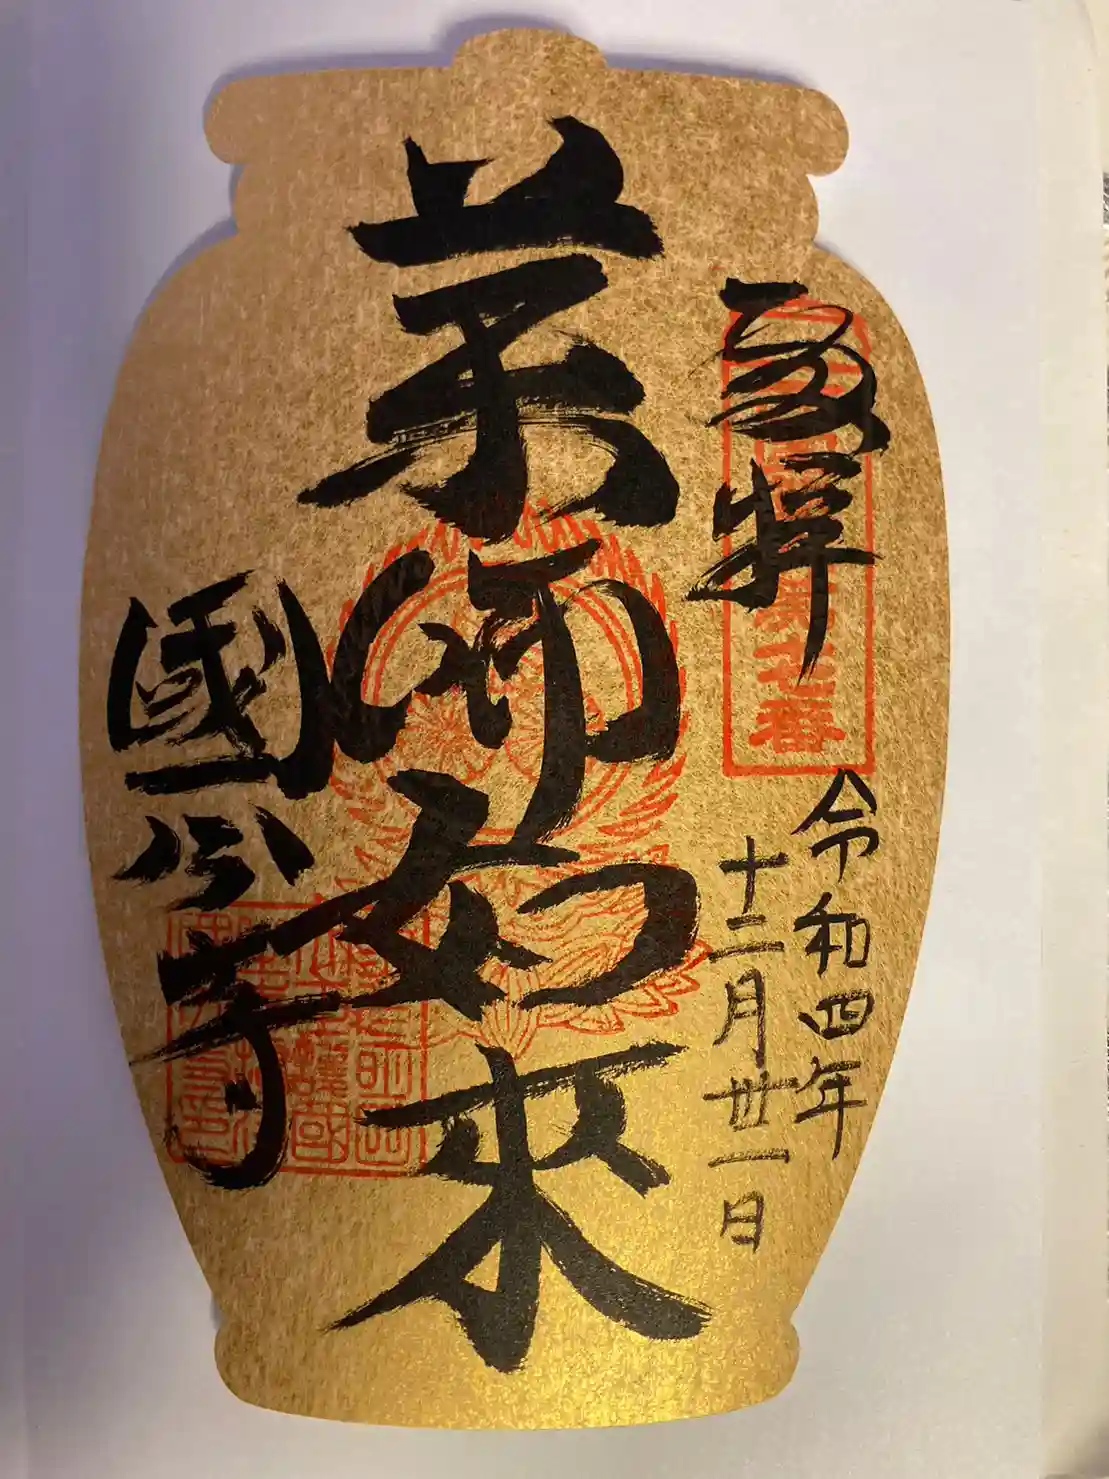 奉拝
令和四年
十二月丗一日
薬師如来
國分寺